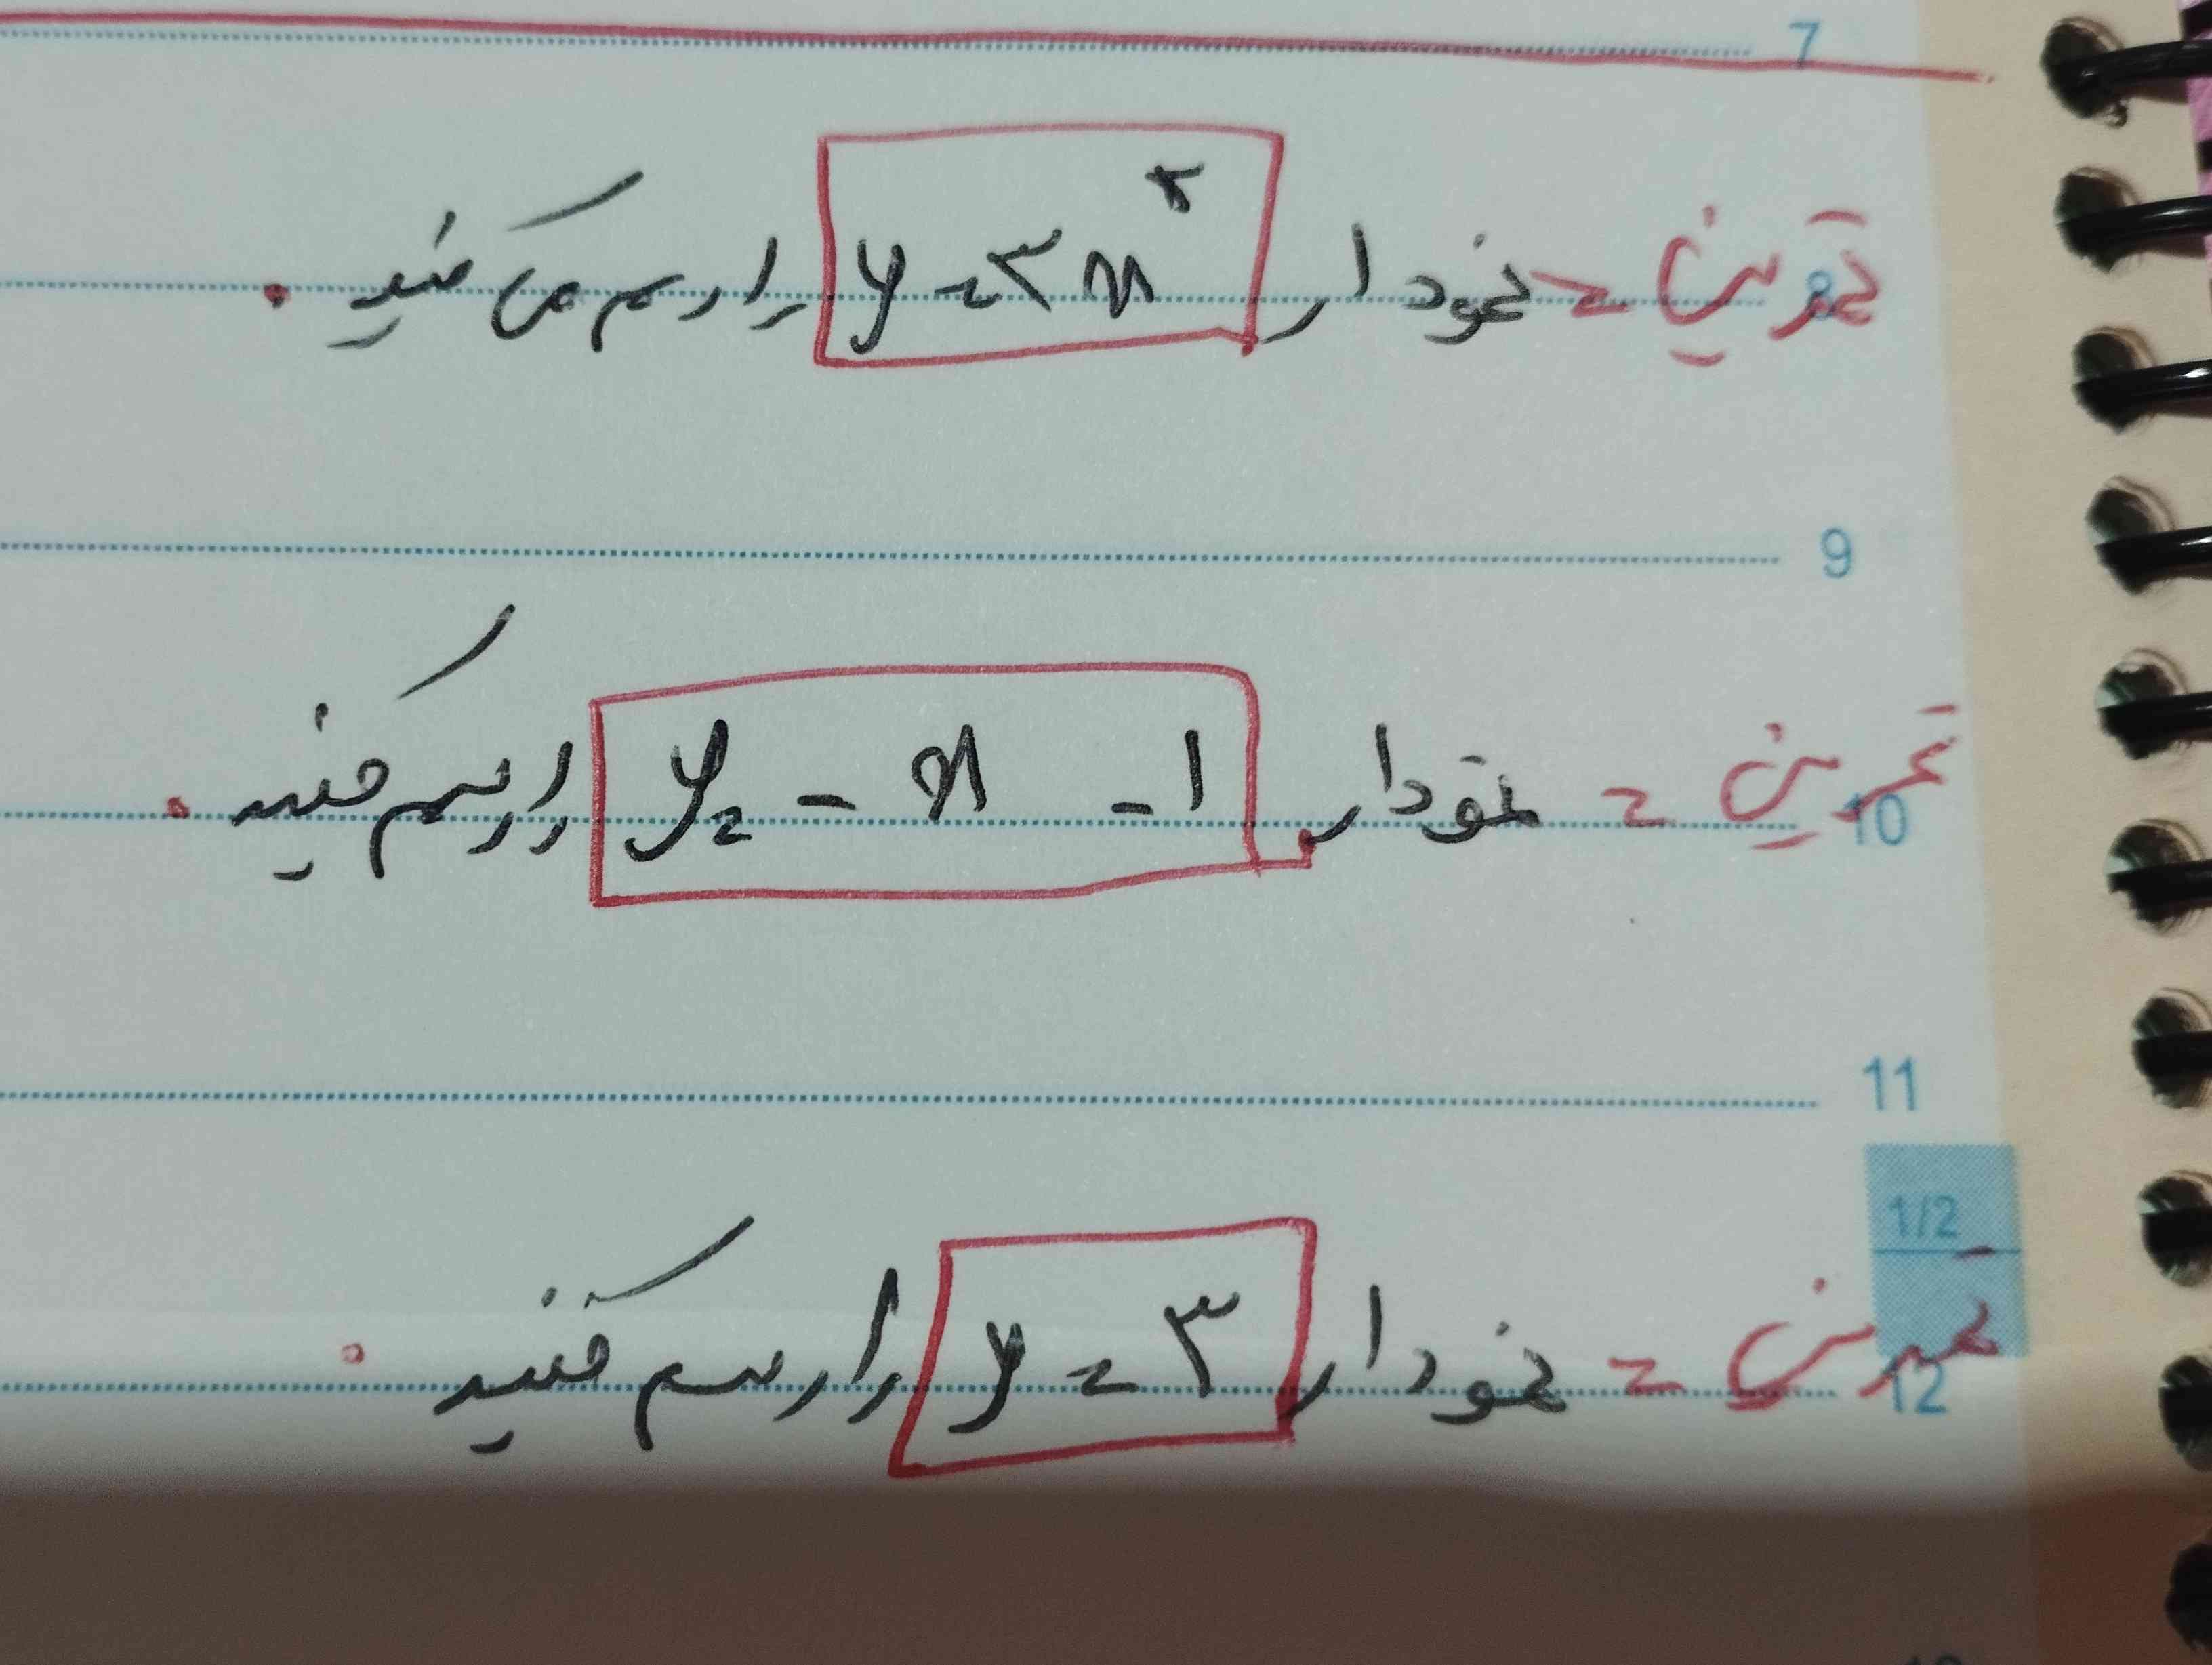 7
تمرین = نمودار y = ۳x^۲ را رسم می کنید .
8
9
تمرین = نمودار y = - x - ۱ را رسم کنید .
10
11
1/2
تمرین = نمودار y = ۳ را رسم کنید .
12